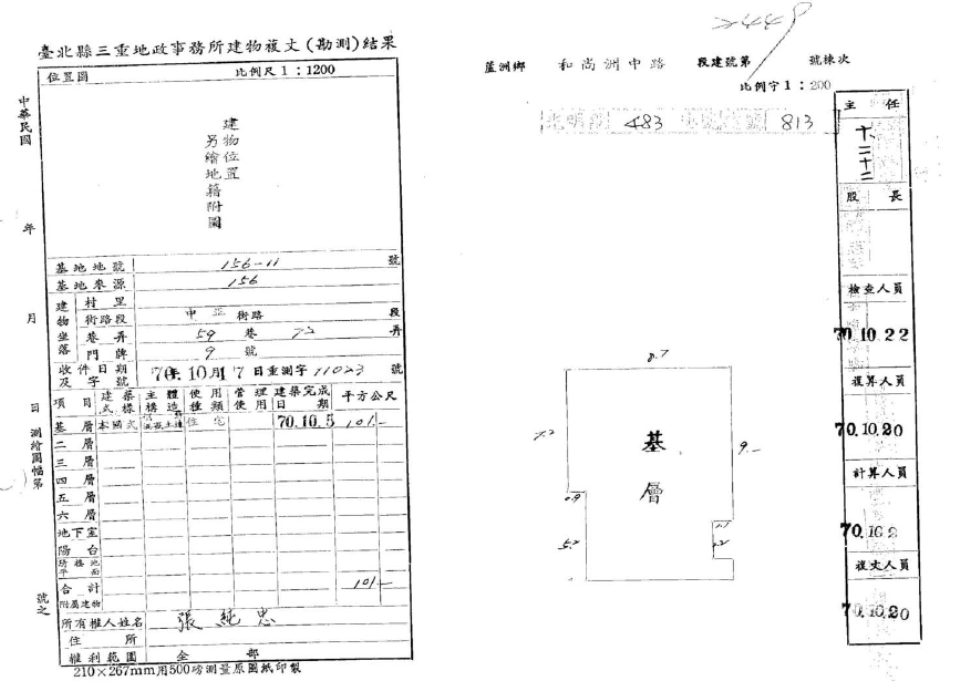 臺北縣三重地政事務所建物複丈(勘測)結果
位置圖 比例尺1:1200
建物位置
另繪地籍附圖
中華民國
年
月
日
測繪圖幅第
號之
基地地號 156-11 號
基地來源 156
建物坐落
村里
街路段 中 街路 段
巷弄 59 巷 72 弄
門牌 9 號
收件日期及字號 70年10月17日重測字11023號
項目 建築式樣 主體構造 使用種類 管理使用 建築完成日期 平方公尺
基層 本國式 住宅 70.10.5 101-
二層
三層
四層
五層
六層
地下室
陽台
合計 101-
附屬建物
所有權人姓名 張純忠
住所
權利範圍 全部
210×267mm用500磅測量原圖紙印製
蘆洲鄉 和尚洲中路 段建號第 2449 號棟次
比例字1:200
483 813
8.7
7.2
9.-
基層
0.9
5.2
1.1
主任
十、二十二
股長
檢查人員
70.10.22
複算人員
70.10.20
計算人員
70.10.2
複丈人員
70.10.20